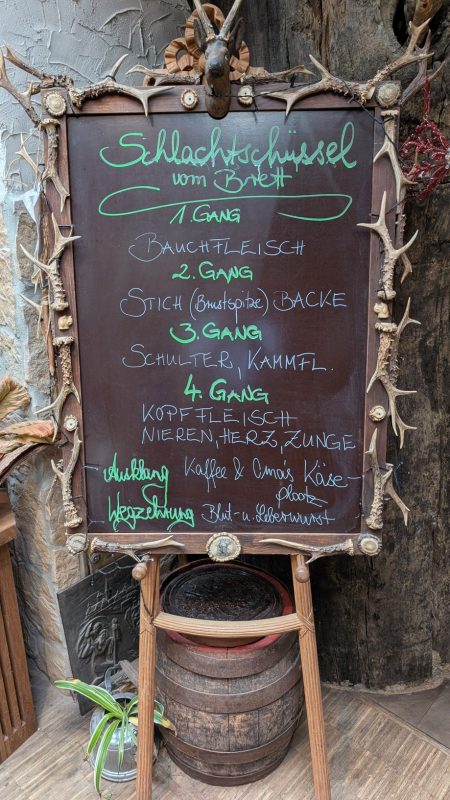 Schlachtschüssel
vom Brett
1. GANG
BAUCHFLEISCH
2. GANG
STICH (Brustspitze) BACKE
3. GANG
SCHULTER, KAMMFL.
4. GANG
KOPFFLEISCH
NIEREN, HERZ, ZUNGE
Ausklang Kaffee & Omas Käse-
plootz
Wegzehrung Blut- u. Leberwurst